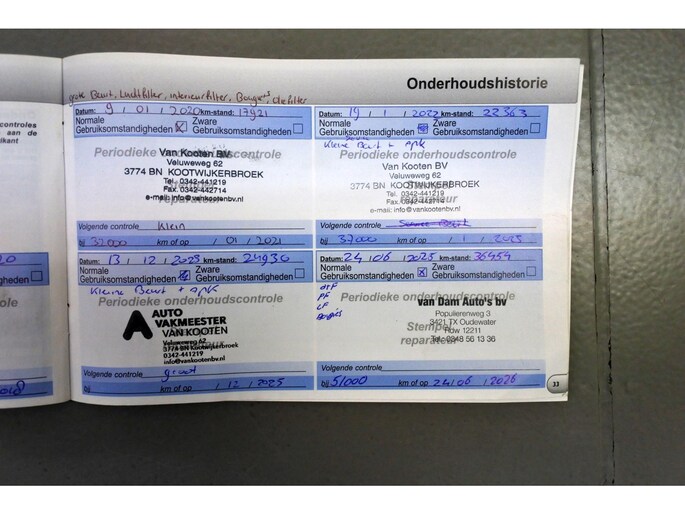 Onderhoudshistorie
controles
aan de
grote Beurt, Luchtfilter, interieurfilter, Bougies, oliefilter
Datum: 9 / 01 / 2020 km-stand: 17921
Normale Gebruiksomstandigheden
Zware Gebruiksomstandigheden
Periodieke onderhoudscontrole
Van Kooten BV
Veluweweg 62
3774 BN KOOTWIJKERBROEK
Tel. 0342-441219
Fax. 0342-442714
e-mail: info@vankootenbv.nl
Volgende controle Klein
bij 32000 km of op / 01 / 2021
Datum: 19 / 1 / 2022 km-stand: 22363
Normale Gebruiksomstandigheden
Zware Gebruiksomstandigheden
Kleine Beurt + APK
Periodieke onderhoudscontrole
Van Kooten BV
Veluweweg 62
3774 BN KOOTWIJKERBROEK
Tel. 0342-441219
Fax. 0342-442714
e-mail: info@vankootenbv.nl
Volgende controle
bij 37000 km of op / 1 / 2025
Datum: 13 / 12 / 2023 km-stand: 24930
Normale Gebruiksomstandigheden
Zware Gebruiksomstandigheden
Kleine Beurt + APK
Periodieke onderhoudscontrole
AUTO
VAKMEESTER
VAN KOOTEN
Veluweweg 62
3774 BN KOOTWIJKERBROEK
0342-441219
info@vankootenbv.nl
Volgende controle groot
bij km of op / 12 / 2025
Datum: 24 / 06 / 2025 km-stand: 36459
Normale Gebruiksomstandigheden
Zware Gebruiksomstandigheden
PF
LF
Bougies
Periodieke onderhoudscontrole
van Dam Auto's bv
Populierenweg 3
3421 TX Oudewater
Rdw 12211
Tel.: 0348 56 13 36
Stempel reparateur
Volgende controle
bij 51000 km of op 24 / 06 / 2026
33